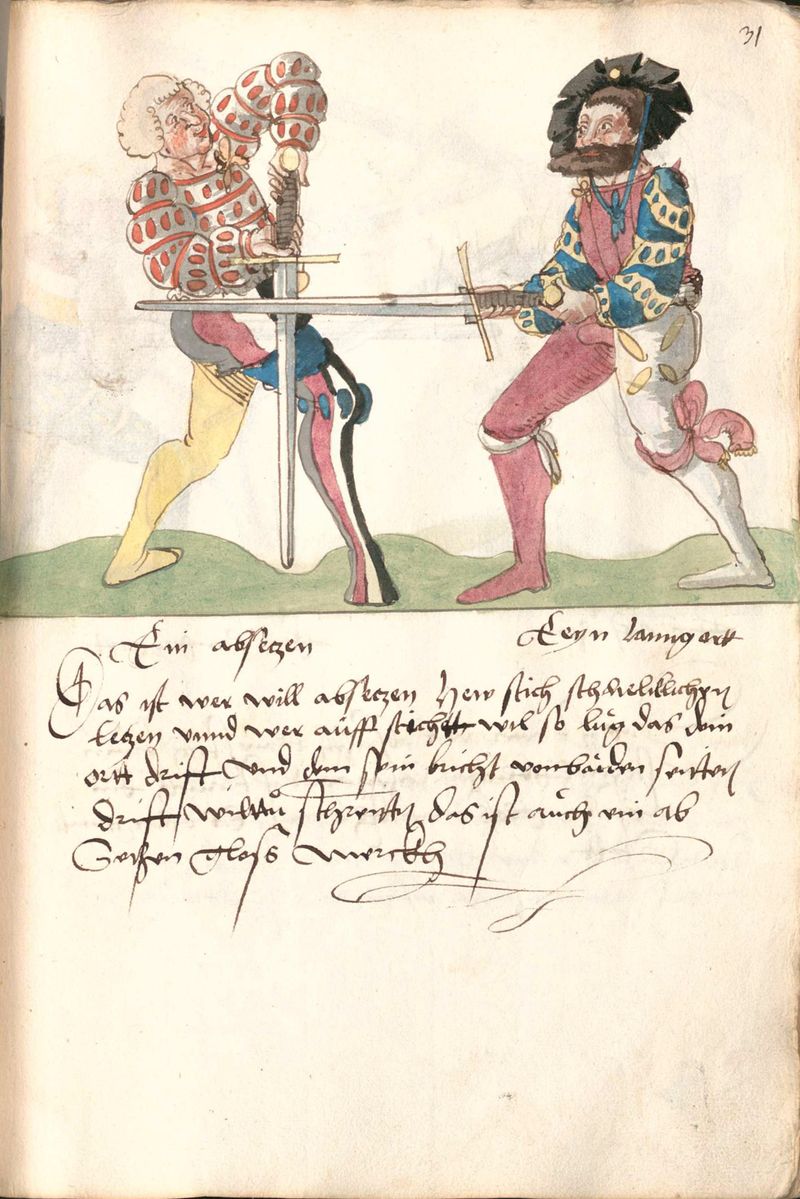 31
Ein absetzen
Leyn lanngortt
Das ist wer will absetzen hew stich schwelklichen
letzen vnnd wer auff sticht wil so lug das dein
ortt drift vnd dem sein bricht von baiden seitten
drift wiltu schreitten das ist auch ein ab
Setzen glosß merckh